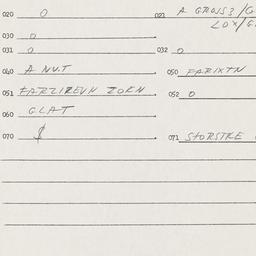 020 0 021 A GROSS3/G
LOX/G
030 0
031 0 032 0
040 A NUT 050 FARIXTN
051 FARZIREUN ZORN 052 0
060 GLAT
070 $ 071 STORSTRE